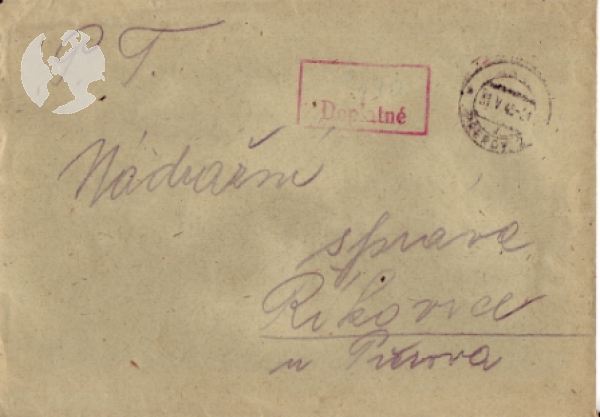 P. T.
Doplatné
31 V 45
Nádražní
správa
Říkovice
u Přerova